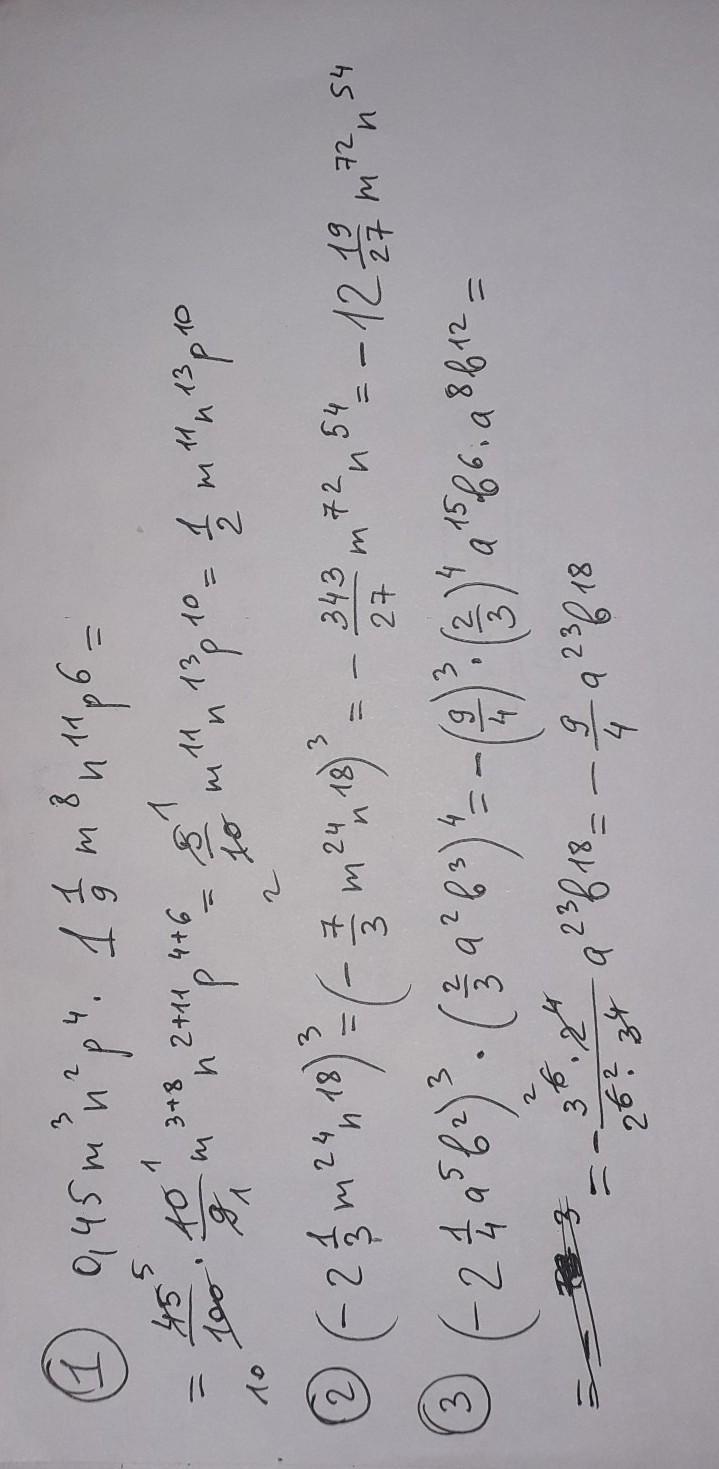 ① 0,45 m³n²p⁴ · 1 1/9 m⁸n¹¹p⁶ =
= 45⁵/100₁₀ · 10¹/9₁ m³⁺⁸n²⁺¹¹p⁴⁺⁶ = 5¹/10₂ m¹¹n¹³p¹⁰ = 1/2 m¹¹n¹³p¹⁰
② (-2 1/3 m²⁴n¹⁸)³ = (-7/3 m²⁴n¹⁸)³ = -343/27 m⁷²n⁵⁴ = -12 19/27 m⁷²n⁵⁴
③ (-2 1/4 a⁵b²)³ · (2/3 a²b³)⁴ = -(9/4)³ · (2/3)⁴ a¹⁵b⁶ · a⁸b¹² =
= - (3⁶ · 2⁴)/(2⁶ · 3⁴) a²³b¹⁸ = -9/4 a²³b¹⁸